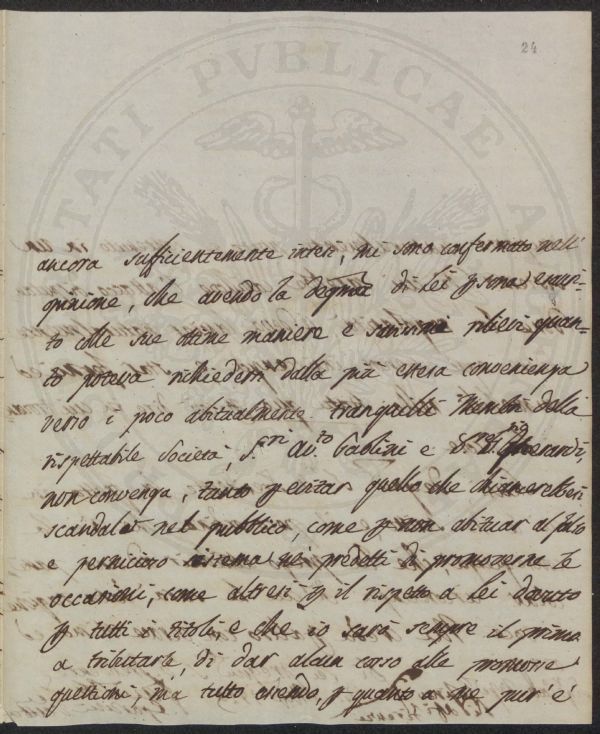 24
ancora sufficientemente intesi, mi sono confermato nell'
opinione, che avendo la degna di Lei psona esauri-
to colle sue ottime maniere e rilievi quan-
to poteva richiedersi dalla più estesa convenienza
verso i poco abitualmente tranquilli Membri della
rispettabile Società, S.ri Av.to Gabbini e D.r Gherardi,
non convenga, tanto p evitar quello che chiamerebbesi
scandalo nel pubblico, come p non abituar al falso
e pernicioso sistema nei predetti di promoverne le
occasioni, come altresì p il rispetto a Lei dovuto
p tutti titoli, e che io sarò sempre il primo
a tributarle, di dar alcun corso alle promosse
questioni; ma tutto essendo, p quanto a me pur è
TATI PVBLICAE